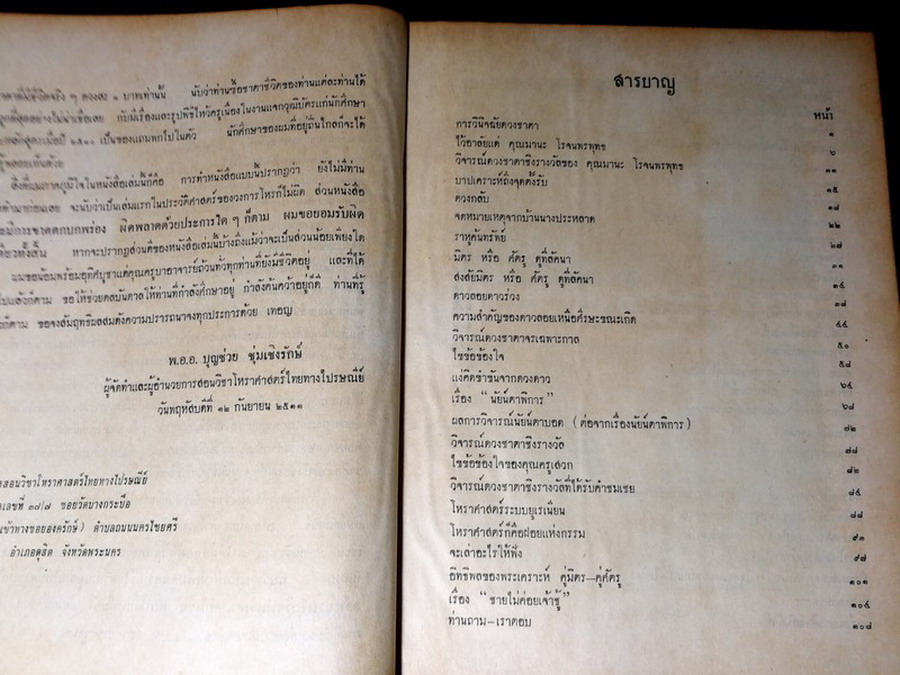 ราคาที่มีชีวิตจริง ๆ ดวงละ ๑ บาทเท่านั้น นับว่าท่านซื้อชาตาชีวิตของท่านแต่ละท่านได้
ถูกที่สุดอย่างไม่น่าเชื่อเลย กับมีเรื่องและรูปพิธีไหว้ครูเนื่องในงานแจกวุฒิบัตรแก่นักศึกษา
เป็นของแถมพกไปในตัว นักศึกษาของผมที่อยู่ถิ่นไกลก็จะได้
รู้พลอยเห็นด้วย
สิ่งที่ผมภาคภูมิใจในหนังสือเล่มนี้ก็คือ การทำหนังสือแบบนี้ปรากฏว่า ยังไม่มีท่าน
ทำมาก่อนเลย จะนับว่าเป็นเล่มแรกในประวัติศาสตร์ของวงการโหรก็ไม่ผิด ส่วนหนังสือ
จะมีการขาดตกบกพร่อง ผิดพลาดด้วยประการใด ๆ ก็ตาม ผมขอยอมรับผิด
เดียวทั้งสิ้น หากจะปรากฏส่วนดีของหนังสือเล่มนี้บ้างถึงแม้ว่าจะเป็นส่วนน้อยเพียงใด
ผมขอน้อมพร้อมอุทิศบูชาแด่คุณครูบาอาจารย์ถ้วนทั่วทุกท่านที่ยังมีชีวิตอยู่ และที่ได้
ไปแล้วก็ตาม ขอให้ช่วยดลบันดาลให้ท่านที่กำลังศึกษาอยู่ กำลังค้นคว้าอยู่ก็ดี ท่านที่รู้
ก็ตาม ขอจงสัมฤทธิผลสมดังความปรารถนาจงทุกประการด้วย เทอญ
พ.อ.อ. บุญช่วย ชุ่มเชิงรักษ์
ผู้จัดทำและผู้อำนวยการสอนวิชาโหราศาสตร์ไทยทางไปรษณีย์
วันพฤหัสบดีที่ ๑๒ กันยายน ๒๕๑๑
สอนวิชาโหราศาสตร์ไทยทางไปรษณีย์
เลขที่ ๓๘/๗ ซอยวัดบางกระบือ
เข้าทางซอยองครักษ์) ตำบลถนนนครไชยศรี
อำเภอดุสิต จังหวัดพระนคร
สารบาญ
หน้า
การวินิจฉัยดวงชาตา ๑
ไว้อาลัยแด่ คุณมานะ โรจนพรพุทธ ๖
วิจารณ์ดวงชาตาชิงรางวัลของ คุณมานะ โรจนพรพุทธ ๑๑
บาปเคราะห์ถึงจุดดั้งรับ ๑๕
ดวงกลับ ๑๘
จดหมายเหตุจากบ้านนางประหลาด ๒๒
ราหูค้นทรัพย์ ๒๗
มิตร หรือ ศัตรู ดูที่ลัคนา ๓๑
สงสัยมิตร หรือ ศัตรู ดูที่ลัคนา ๓๔
ดาวลอยดาวร่วง ๓๘
ความสำคัญของดาวลอยเหนือศีรษะขณะเกิด ๔๔
วิจารณ์ดวงชาตาจรเฉพาะกาล ๕๐
ไขข้อข้องใจ ๕๘
แง่คิดขำขันจากดวงดาว ๖๔
เรื่อง “นัยน์ตาพิการ” ๖๗
ผลการวิจารณ์นัยน์ตาบอด (ต่อจากเรื่องนัยน์ตาพิการ) ๗๒
วิจารณ์ดวงชาตาชิงรางวัล ๗๗
ไขข้อข้องใจของคุณครูเสวก ๘๒
วิจารณ์ดวงชาตาชิงรางวัลที่ได้รับคำชมเชย ๘๕
โหราศาสตร์ระบบยูเรเนียน ๘๘
โหราศาสตร์ก็คือฝอยแห่งกรรม ๙๓
จะเล่าอะไรให้ฟัง ๙๗
อิทธิพลของพระเคราะห์ คู่มิตร–คู่ศัตรู ๑๐๑
เรื่อง “ชายไม่ค่อยเจ้าชู้” ๑๐๔
ท่านถาม–เราตอบ ๑๐๘